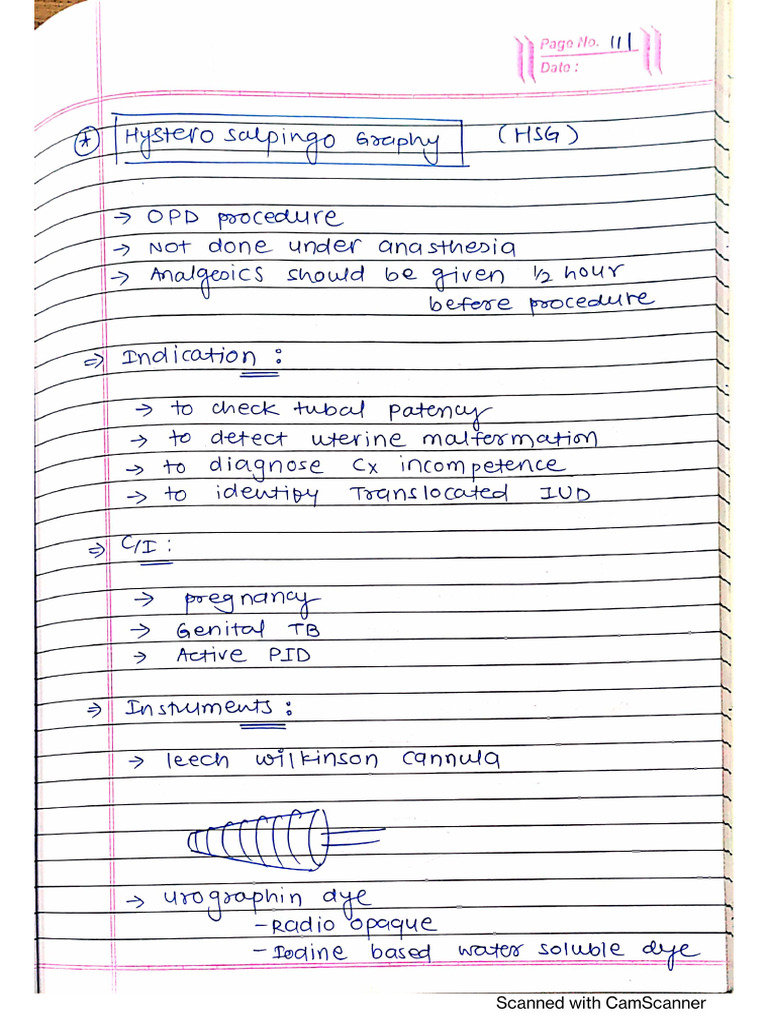 Page No. 111
Date :
* Hystero Salpingo Graphy (HSG)
→ OPD procedure
→ Not done under anasthesia
→ Analgesics should be given 1/2 hour
before procedure
⇒ Indication :
→ to check tubal patency
→ to detect uterine malformation
→ to diagnose Cx incompetence
→ to identify Translocated IUD
⇒ C/I :
→ pregnancy
→ Genital TB
→ Active PID
⇒ Instruments :
→ leech wilkinson cannula
→ urographin dye
- Radio opaque
- Iodine based water soluble dye
Scanned with CamScanner